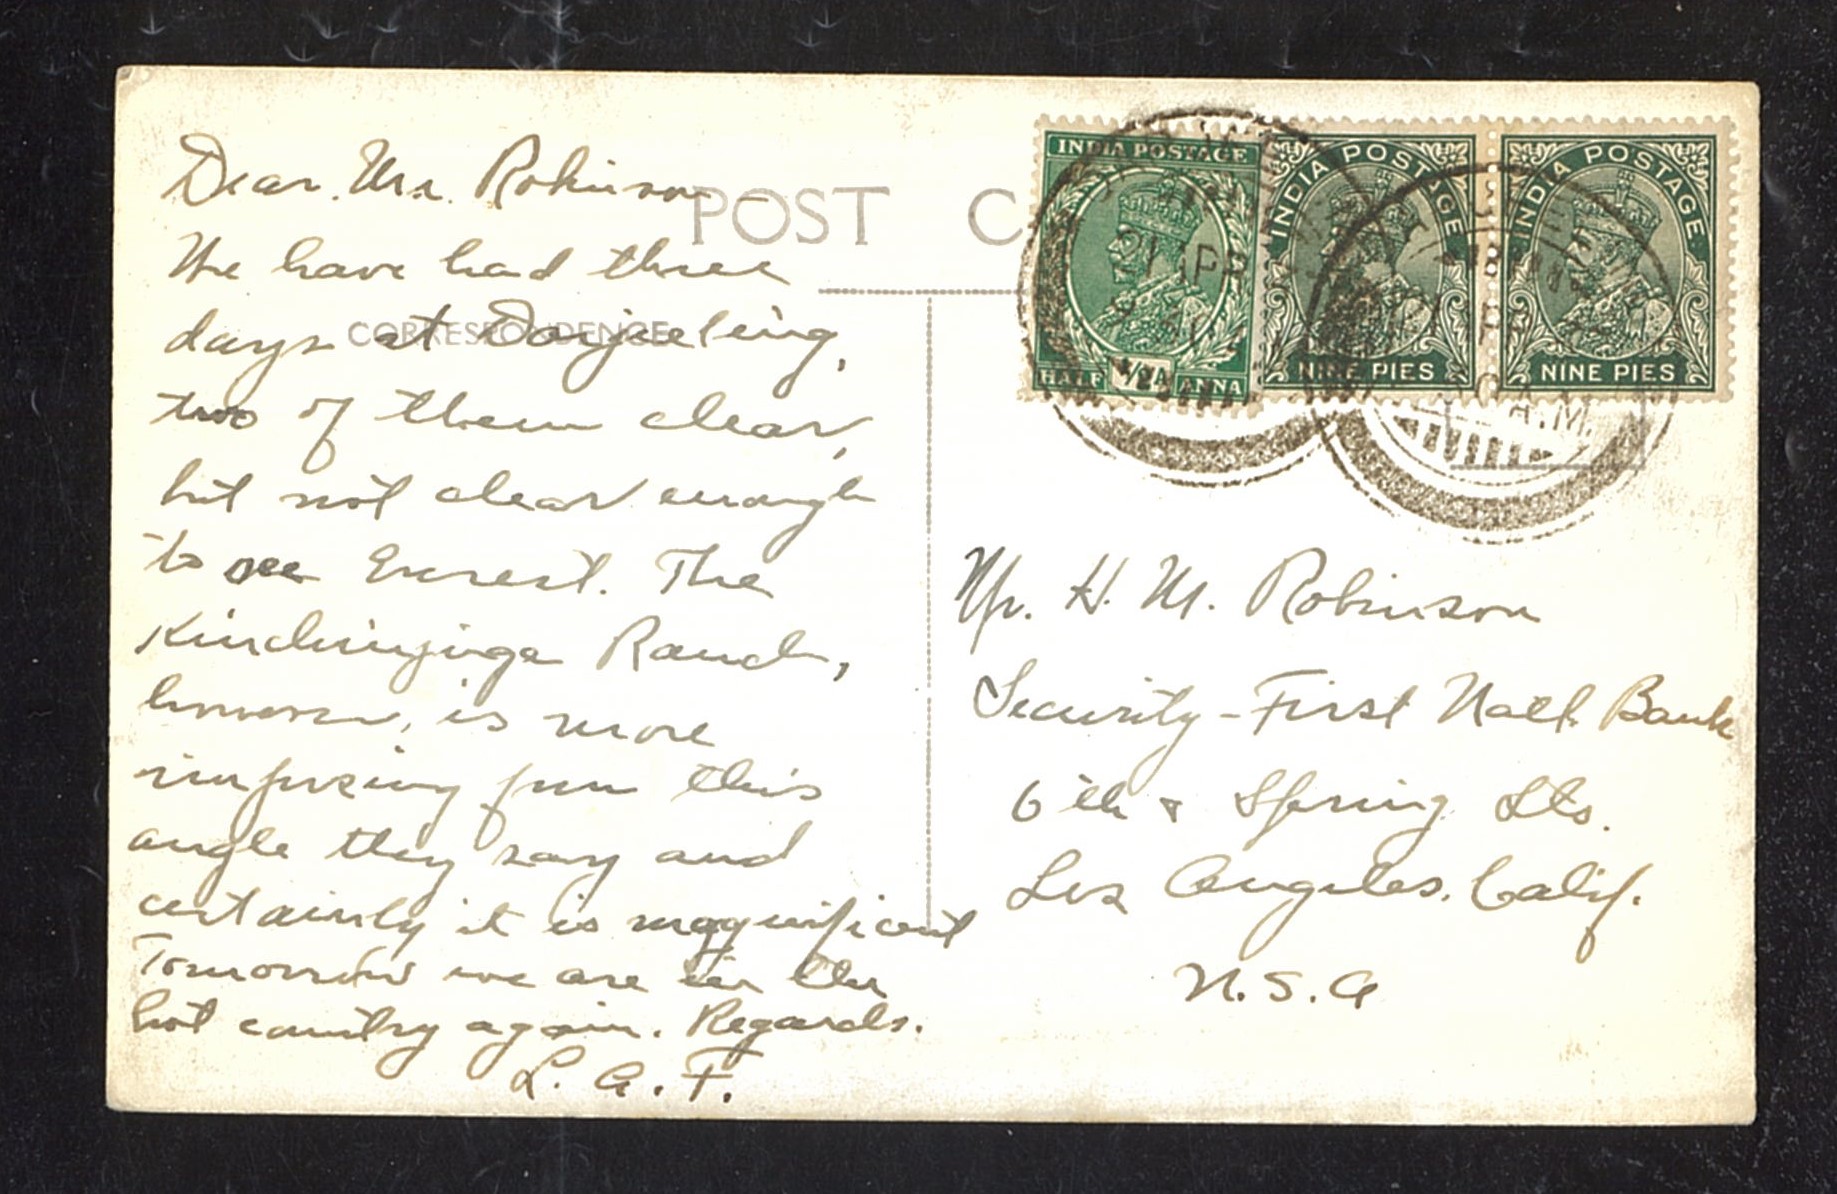 Dear Mr. Robinson -
We have had three
days at Darjeeling,
two of them clear,
but not clear enough
to see Everest. The
Kinchinjinga Ranch,
however, is more
imposing from this
angle they say and
certainly it is magnificent
Tomorrow we are in the
hot country again. Regards.
L. A. F.
POST C
CORRESPONDENCE
INDIA POSTAGE
HALF ½A ANNA
INDIA POSTAGE
NINE PIES
INDIA POSTAGE
NINE PIES
21 APR
A.M.
Mr. H. M. Robinson
Security-First Natl. Bank
6th & Spring Sts.
Los Angeles. Calif.
U.S.A